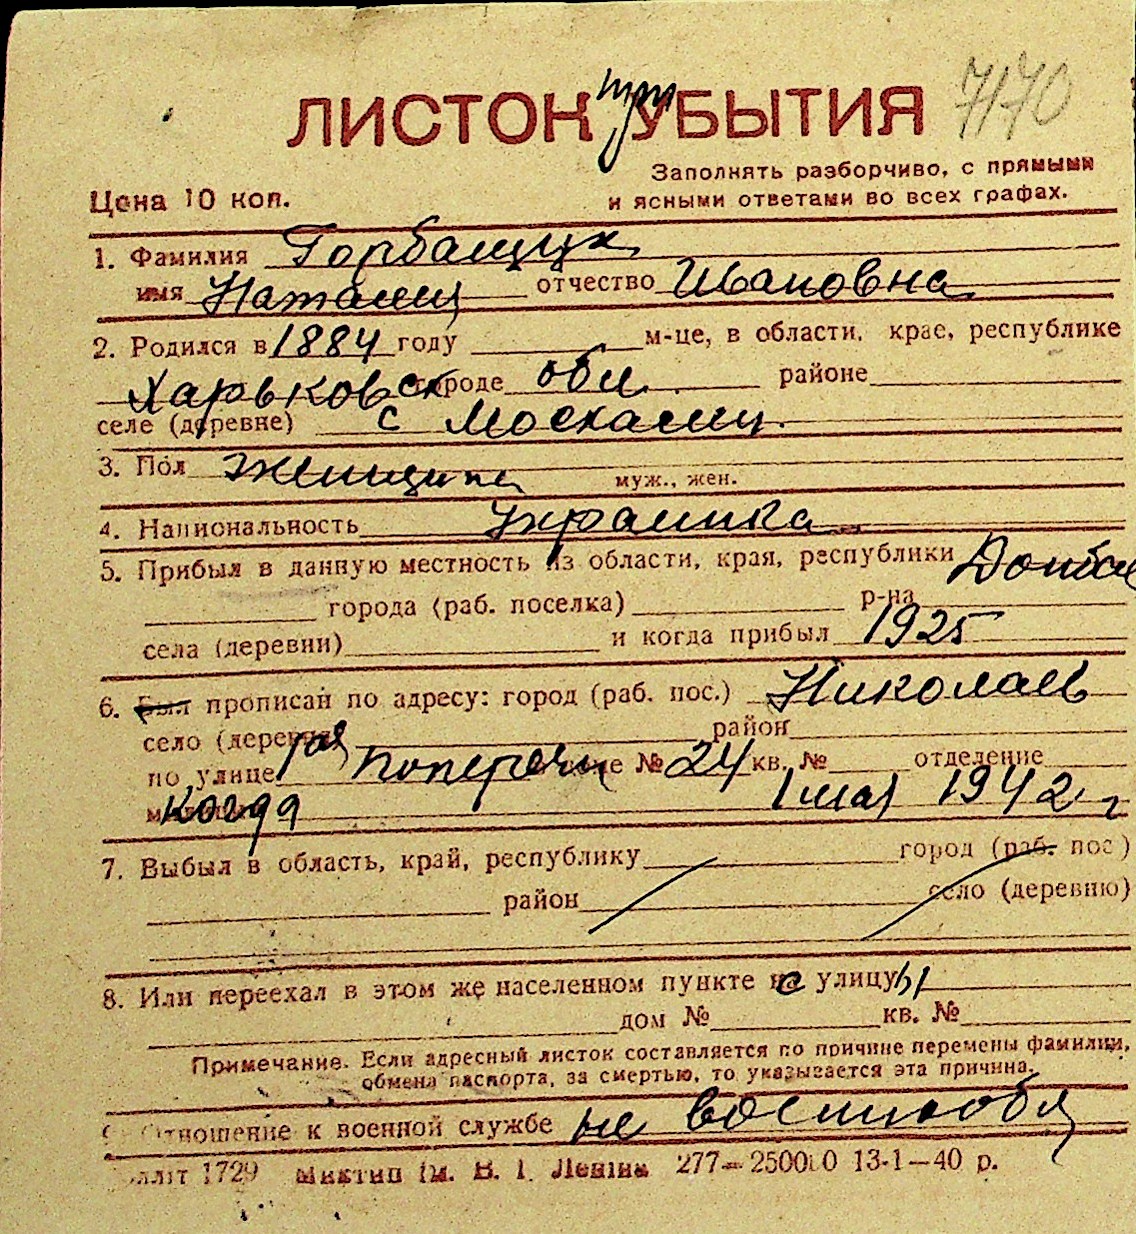 ЛИСТОК при УБЫТИЯ 7170
Заполнять разборчиво, с прямыми
Цена 10 коп. и ясными ответами во всех графах.
1. Фамилия Горбащук
имя Наталия отчество Ивановна
2. Родился в 1884 году м-це, в области, крае, республике
Харьковск городе обл. районе
селе (деревне) с Москалиц.
3. Пол женщина муж., жен.
4. Национальность Украинка
5. Прибыл в данную местность из области, края, республики Донбас
города (раб. поселка) р-на
села (деревни) и когда прибыл 1925
6. Был прописан по адресу: город (раб. пос.) Николаев
село (деревня) район
по улице 1ая Попереч № 24 кв. № отделение
когда 1 мая 1942 г
7. Выбыл в область, край, республику город (раб. пос)
район село (деревню)
8. Или переехал в этом же населенном пункте с улицуы
дом № кв. №
Примечание. Если адресный листок составляется по причине перемены фамилии,
обмена паспорта, за смертью, то указывается эта причина.
Отношение к военной службе не военнообя
1729 Миктип ім. В. І. Леніна 277—25000 13-1—40 р.